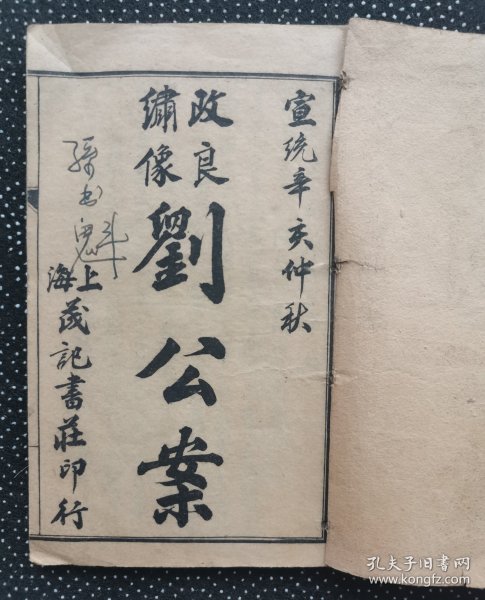 宣统辛亥仲秋
改良
绣像
劉公案
上海
茂記書莊印行
孔夫子旧书网
www.kongfz.com